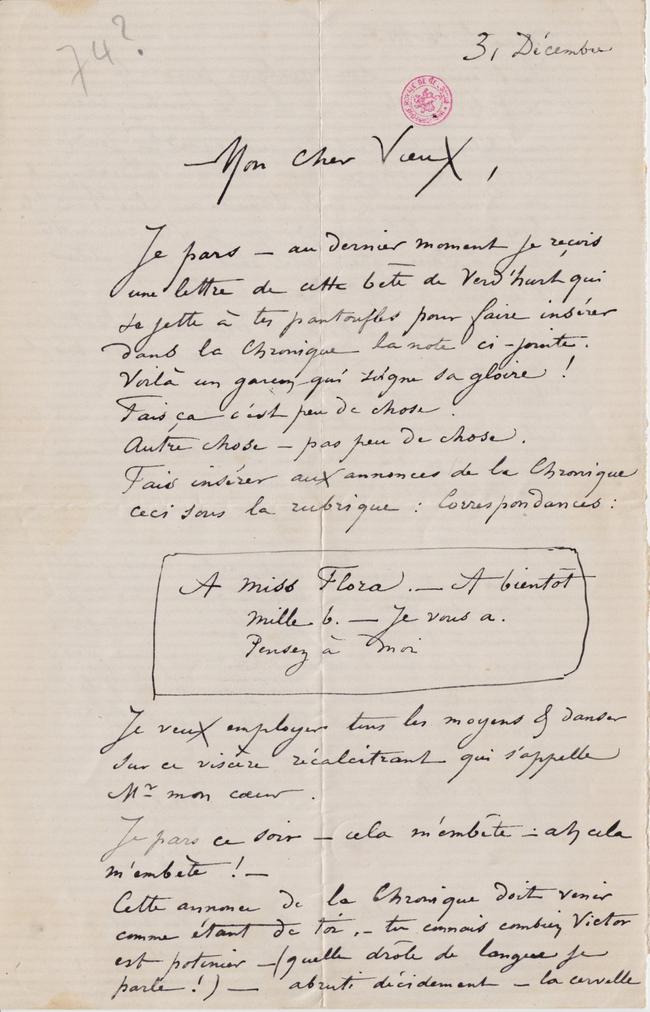 74?
31 Décembre
Mon cher Vieux,
Je pars — au dernier moment je reçois
une lettre de cette bête de Verd'hurt qui
se jette à tes pantoufles pour faire insérer
dans la Chronique la note ci-jointe.
Voilà un garçon qui soigne sa gloire !
Fais ça c'est peu de chose.
Autre chose — pas peu de chose.
Fais insérer aux annonces de la Chronique
ceci sous la rubrique : Correspondances :
A miss Flora. — A bientôt
mille b. — Je vous a.
Pensez à moi
Je veux employer tous les moyens & danser
sur ce viscère récalcitrant qui s'appelle
Mr mon cœur.
Je pars ce soir — cela m'embête — ah cela
m'embête ! —
Cette annonce de la Chronique doit venir
comme étant de toi. — tu connais combien Victor
est potinier — (quelle drôle de langue je
parle !) — abruti décidement — la cervelle